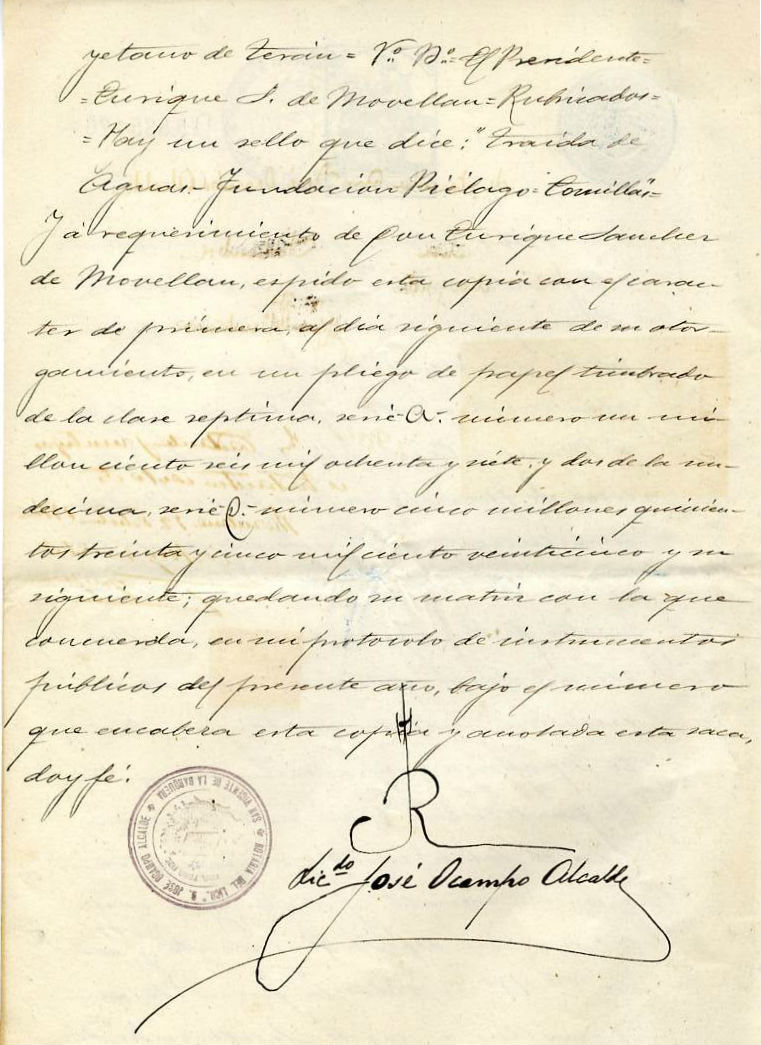 yetano de Terán = V.º B.º = El Presidente =
= Enrique S. de Movellan = Rubricados =
= Hay un sello que dice: "Traida de
Aguas.- Fundacion Piélago = Comillas" =
Y á requerimiento de Don Enrique Sanchez
de Movellan, espido esta copia con el carac-
ter de primera, al dia siguiente de su otor-
gamiento, en un pliego de papel timbrado
de la clase septima, serie A. número un mi-
llon ciento seis mil ochenta y siete, y dos de la un-
decima, serie C. número cinco millones quinien-
tos treinta y cinco mil ciento veinticinco y su
siguiente; quedando su matriz con la que
concuerda, en mi protocolo de instrumentos
públicos del presente año, bajo el número
que encabeza esta copia y anotada esta saca,
doy fé.
NOTARIA DEL LICDO. D. JOSÉ OCAMPO ALCALDE
SAN VICENTE DE LA BARQUERA
Licdo José Ocampo Alcalde